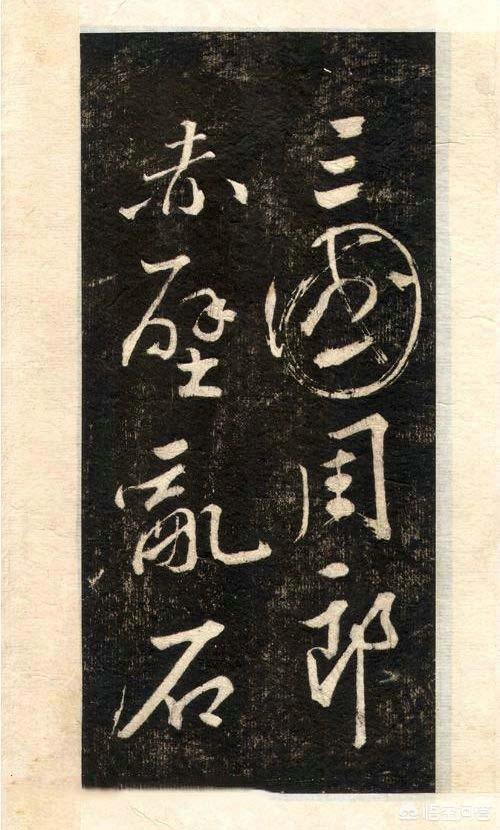 三國周郎
赤壁亂石
悟空问答